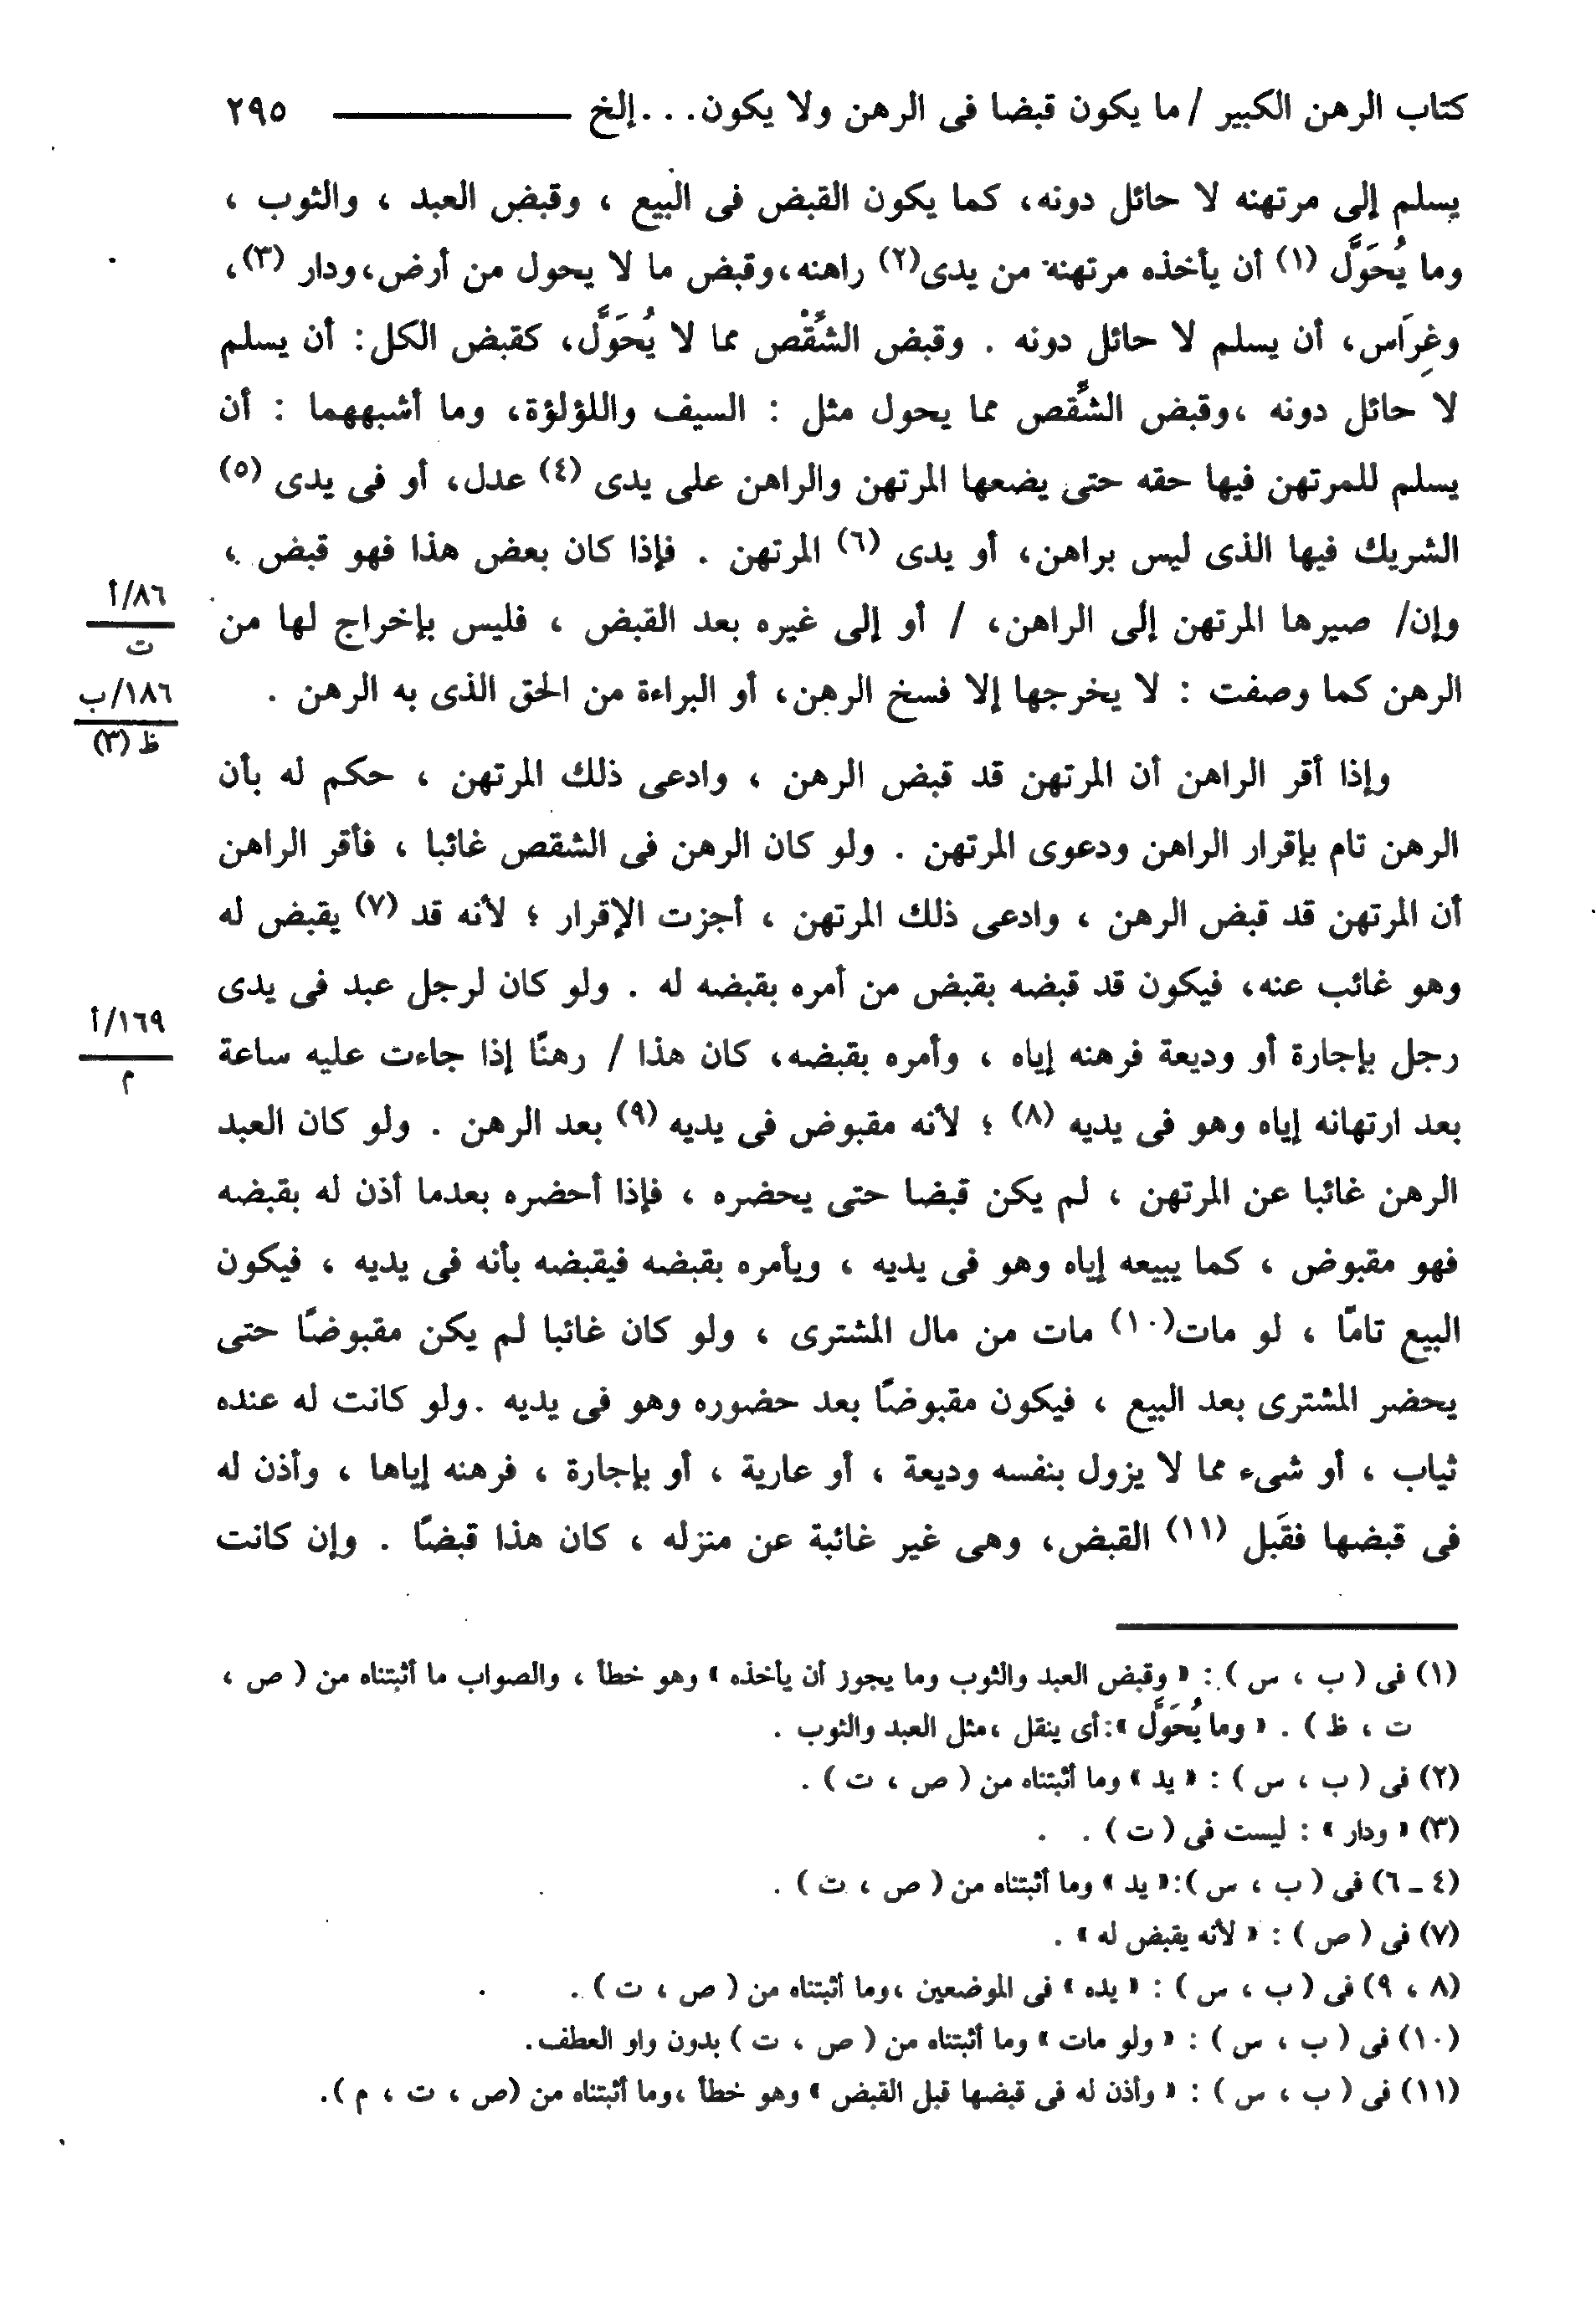 كتاب الرهن الكبير / ما يكون قبضا فى الرهن ولا يكون...إلخ ـــــــــ ٢٩٥
يسلم إلى مرتهنه لا حائل دونه، كما يكون القبض فى البيع ، وقبض العبد ، والثوب ،
وما يُحَوَّل (١) أن يأخذه مرتهنه من يدى(٢) راهنه،وقبض ما لا يحول من أرض،ودار (٣)،
وغِرَاس، أن يسلم لا حائل دونه . وقبض الشِّقْص مما لا يُحَوَّل، كقبض الكل: أن يسلم
لا حائل دونه ،وقبض الشِّقص مما يحول مثل : السيف واللؤلؤة، وما أشبههما : أن
يسلم للمرتهن فيها حقه حتى يضعها المرتهن والراهن على يدى (٤) عدل، أو فى يدى (٥)
الشريك فيها الذى ليس براهن، أو يدى (٦) المرتهن . فإذا كان بعض هذا فهو قبض ،
وإن/ صيرها المرتهن إلى الراهن، / أو إلى غيره بعد القبض ، فليس بإخراج لها من
٨٦/أ
ت
الرهن كما وصفت : لا يخرجها إلا فسخ الرهن، أو البراءة من الحق الذى به الرهن .
١٨٦/ب
ظ (٣)
وإذا أقر الراهن أن المرتهن قد قبض الرهن ، وادعى ذلك المرتهن ، حكم له بأن
الرهن تام بإقرار الراهن ودعوى المرتهن . ولو كان الرهن فى الشقص غائبا ، فأقر الراهن
أن المرتهن قد قبض الرهن ، وادعى ذلك المرتهن ، أجزت الإقرار ؛ لأنه قد (٧) يقبض له
وهو غائب عنه، فيكون قد قبضه بقبض من أمره بقبضه له . ولو كان لرجل عبد فى يدى
رجل بإجارة أو وديعة فرهنه إياه ، وأمره بقبضه، كان هذا / رهنًا إذا جاءت عليه ساعة
١٦٩/أ
م
بعد ارتهانه إياه وهو فى يديه (٨) ؛ لأنه مقبوض فى يديه (٩) بعد الرهن . ولو كان العبد
الرهن غائبا عن المرتهن ، لم يكن قبضا حتى يحضره ، فإذا أحضره بعدما أذن له بقبضه
فهو مقبوض ، كما يبيعه إياه وهو فى يديه ، ويأمره بقبضه فيقبضه بأنه فى يديه ، فيكون
البيع تامًّا ، لو مات(١٠) مات من مال المشترى ، ولو كان غائبا لم يكن مقبوضًا حتى
يحضر المشترى بعد البيع ، فيكون مقبوضًا بعد حضوره وهو فى يديه .ولو كانت له عنده
ثياب ، أو شىء مما لا يزول بنفسه وديعة ، أو عارية ، أو بإجارة ، فرهنه إياها ، وأذن له
فى قبضها فقَبل (١١) القبض، وهى غير غائبة عن منزله ، كان هذا قبضًا . وإن كانت
(١) فى ( ب ، س ) : « وقبض العبد والثوب وما يجوز أن يأخذه » وهو خطأ ، والصواب ما أثبتناه من ( ص ،
ت ، ظ ) . « وما يُحَوَّل »:أى ينقل ،مثل العبد والثوب .
(٢) فى ( ب ، س ) : « يد » وما أثبتناه من ( ص ، ت ) .
(٣) « ودار » : ليست فى ( ت ) .
(٤ ـ ٦) فى ( ب ، س ):« يد » وما أثبتناه من ( ص ، ت ) .
(٧) فى ( ص ) : « لأنه يقبض له » .
(٨ ، ٩) فى ( ب ، س ) : « يده » فى الموضعين ،وما أثبتناه من ( ص ، ت ) .
(١٠) فى ( ب ، س ) : « ولو مات » وما أثبتناه من ( ص ، ت ) بدون واو العطف.
(١١) فى ( ب ، س ) : « وأذن له فى قبضها قبل القبض » وهو خطأ ،وما أثبتناه من (ص ، ت ، م ).